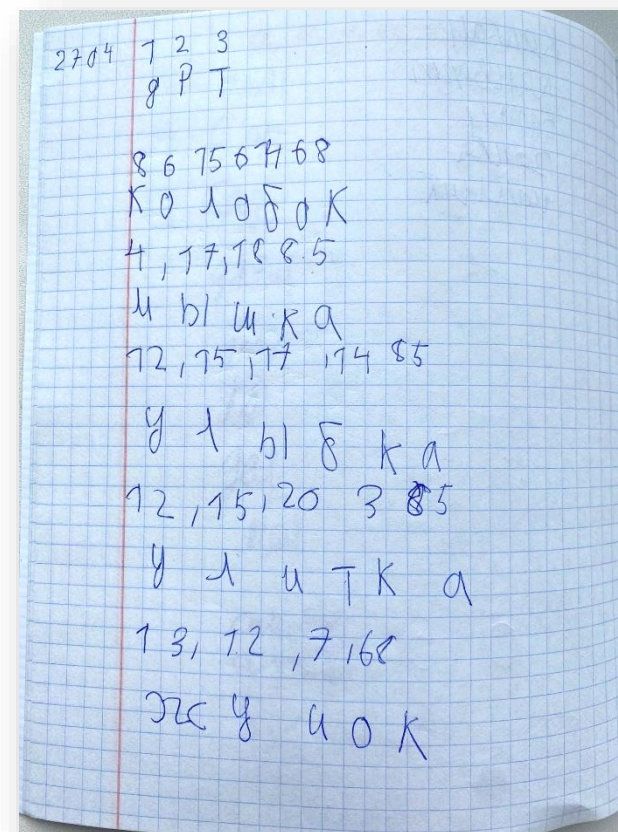 2704 1 2 3
д Р Т
8 6 15 6 14 6 8
К О Л О Б О К
4, 17, 18 8 5
М Ы Ш К А
12, 15, 17, 14 8 5
У Л Ы Б К А
12, 15, 20 3 8 5
У Л И Т К А
13, 12, 7, 6 8
Ж У Ч О К